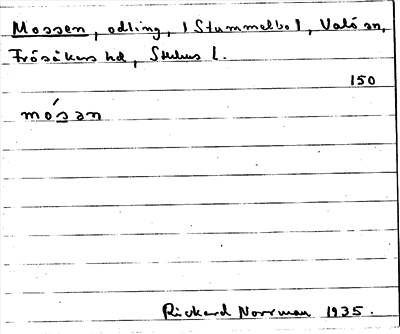 Mossen, odling, (Stummelbo), Valö sn,
Frösåkers hd, Sthlms l.
150
mósan
Rickard Norrman 1935.